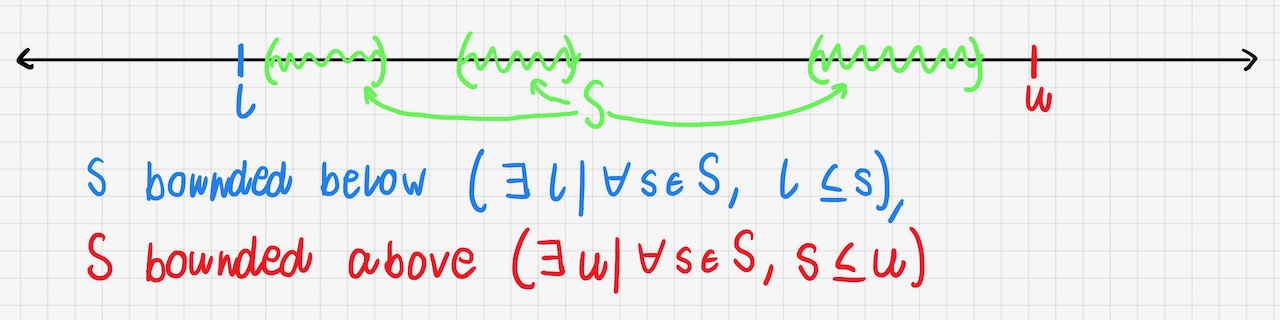 l S u
S bounded below (∃ l | ∀ s ∈ S, l ≤ s),
S bounded above (∃ u | ∀ s ∈ S, s ≤ u)